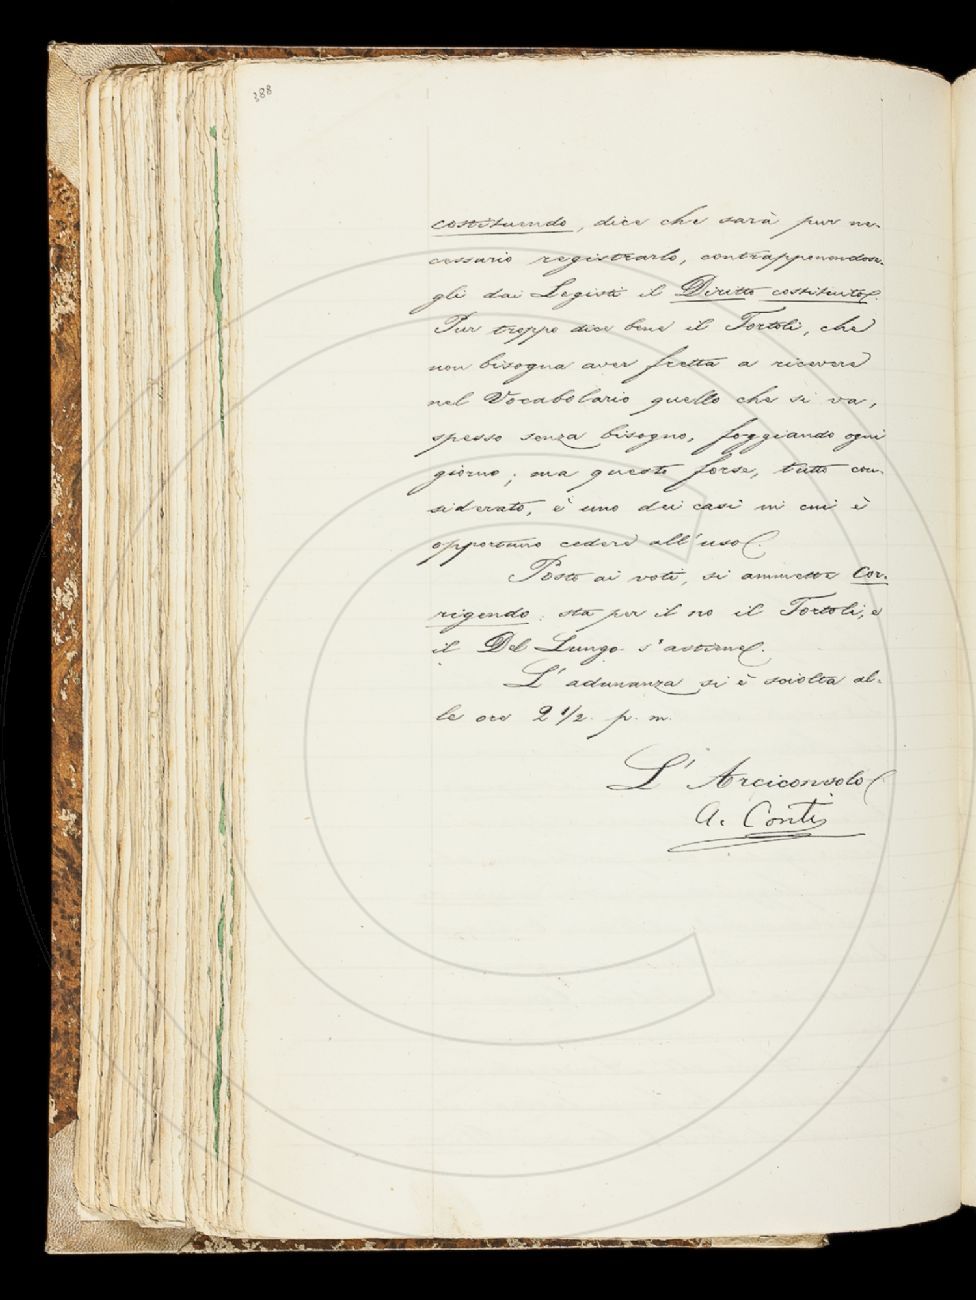 388
costituendo, dice che sarà pur ne-
cessario registrarlo, contrapponendose-
gli dai Legisti il Diritto costituito.
Pur troppo dice bene il Tortoli, che
non bisogna aver fretta a ricevere
nel Vocabolario quello che si va,
spesso senza bisogno, foggiando ogni
giorno; ma questo forse, tutto con-
siderato, è uno dei casi in cui è
opportuno cedere all'uso.
Posto ai voti, si ammette Cor-
rigendo: sta per il no il Tortoli, e
il Del Lungo s'astiene.
L'adunanza si è sciolta al-
le ore 2 1/2. p. m.
L'Arciconsolo
A. Conti